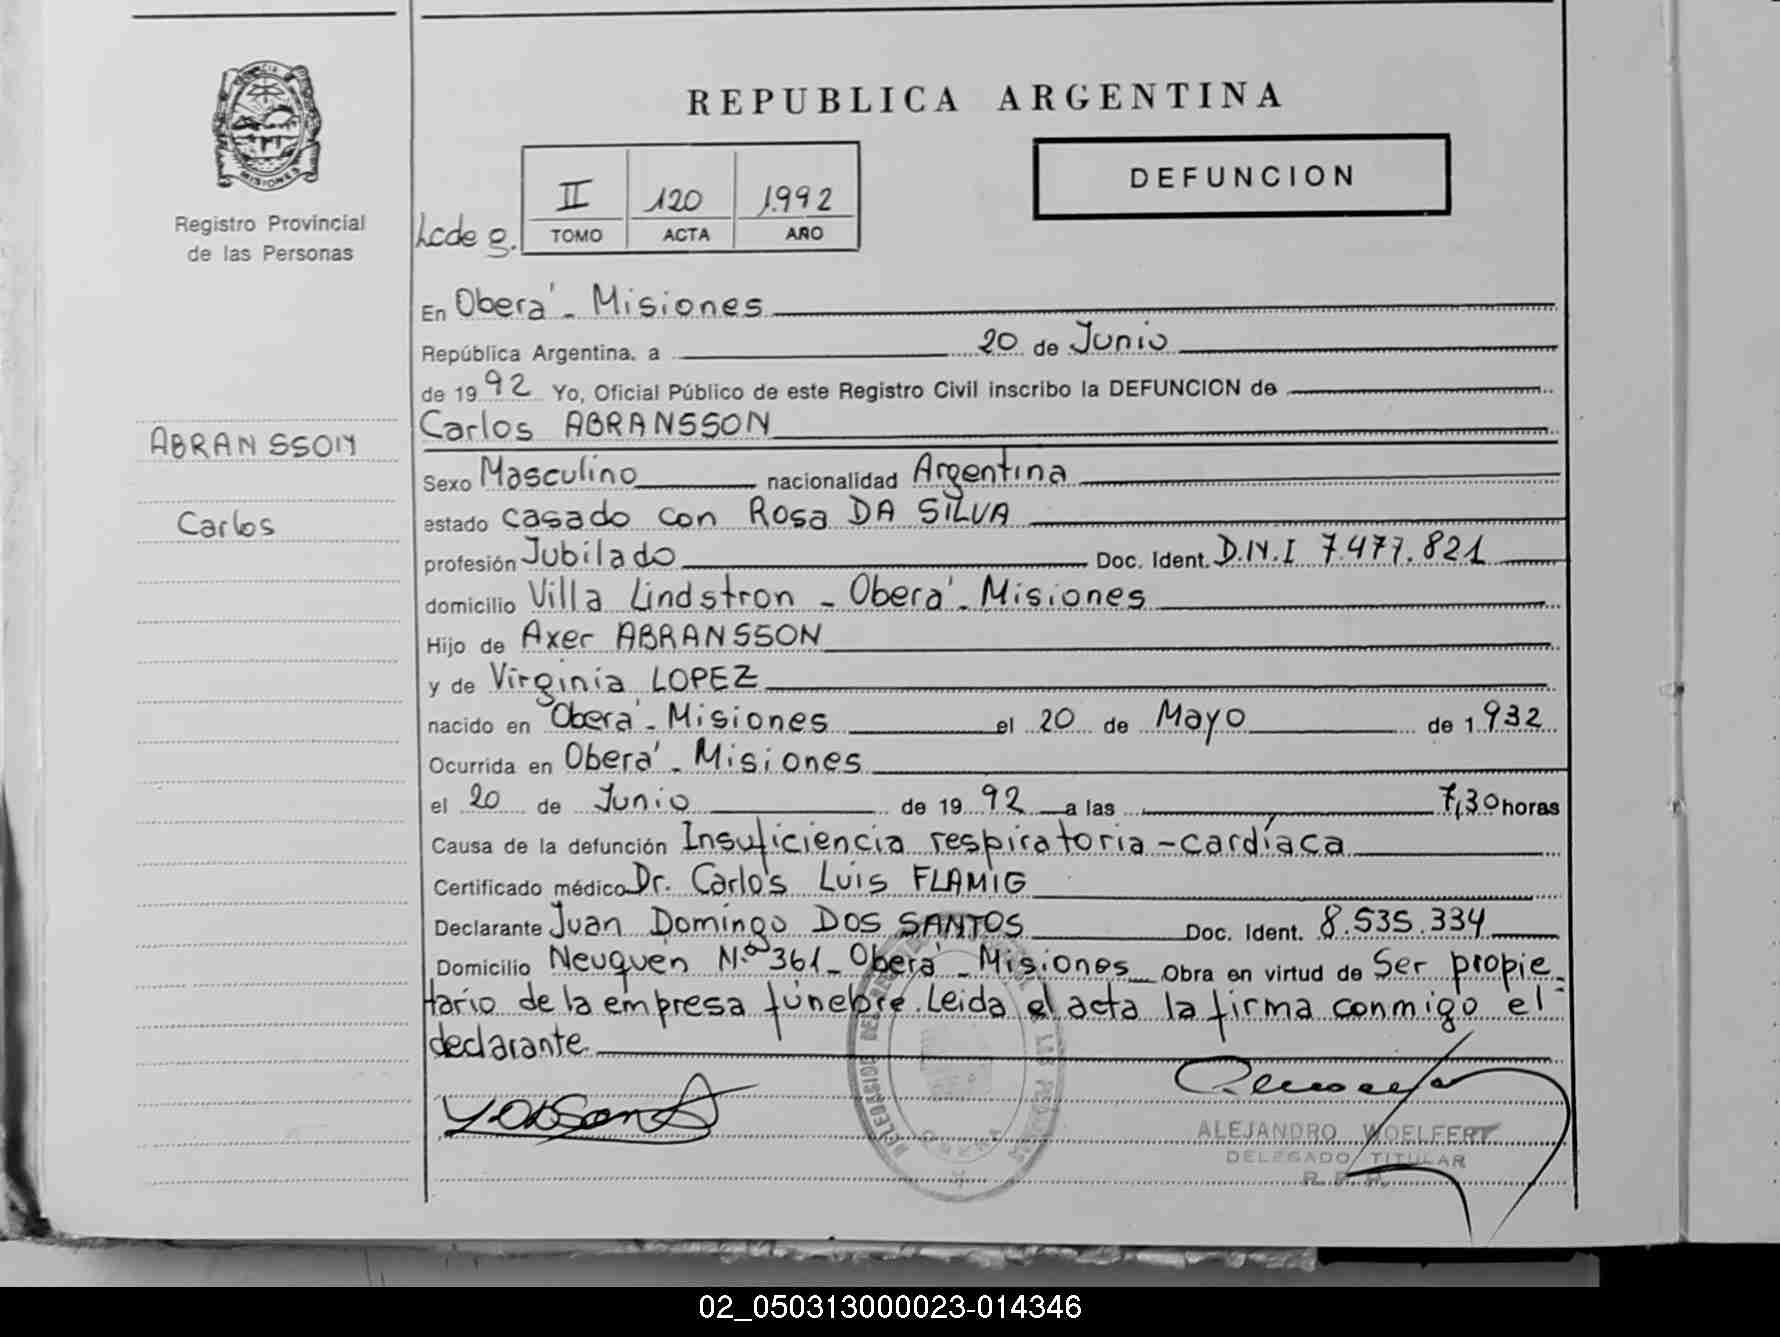 REPUBLICA ARGENTINA
DEFUNCION
MISIONES
Registro Provincial
de las Personas
II 120 1992
TOMO ACTA AÑO
En Oberá - Misiones
República Argentina, a 20 de Junio
de 1992 Yo, Oficial Público de este Registro Civil inscribo la DEFUNCION de
Carlos ABRANSSON
ABRANSSON
Carlos
Sexo Masculino nacionalidad Argentina
estado casado con Rosa DA SILVA
profesión Jubilado Doc. Ident. D.N.I 7.477.821
domicilio Villa Lindstron - Oberá - Misiones
Hijo de Axer ABRANSSON
y de Virginia LOPEZ
nacido en Oberá - Misiones el 20 de Mayo de 1.932
Ocurrida en Oberá - Misiones
el 20 de Junio de 1992 a las 7,30 horas
Causa de la defunción Insuficiencia respiratoria - cardíaca
Certificado médico Dr. Carlos Luis FLAMIG
Declarante Juan Domingo DOS SANTOS Doc. Ident. 8.535.334
Domicilio Neuquén N.º 361 - Oberá - Misiones Obra en virtud de Ser propie-
tario de la empresa fúnebre. Leida el acta la firma conmigo el
declarante.
ALEJANDRO WOELFERT
DELEGADO TITULAR
R. P. P.
02_050313000023-014346